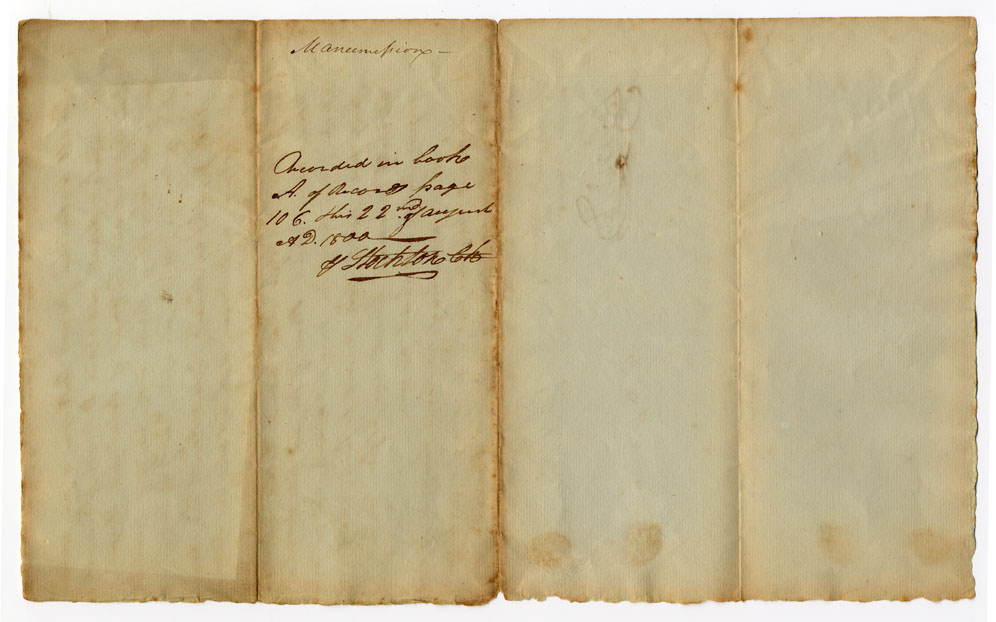 Manumission —
Recorded in book
A. of Records page
106. this 22nd. of august
AD. 1800
Stockton Clk